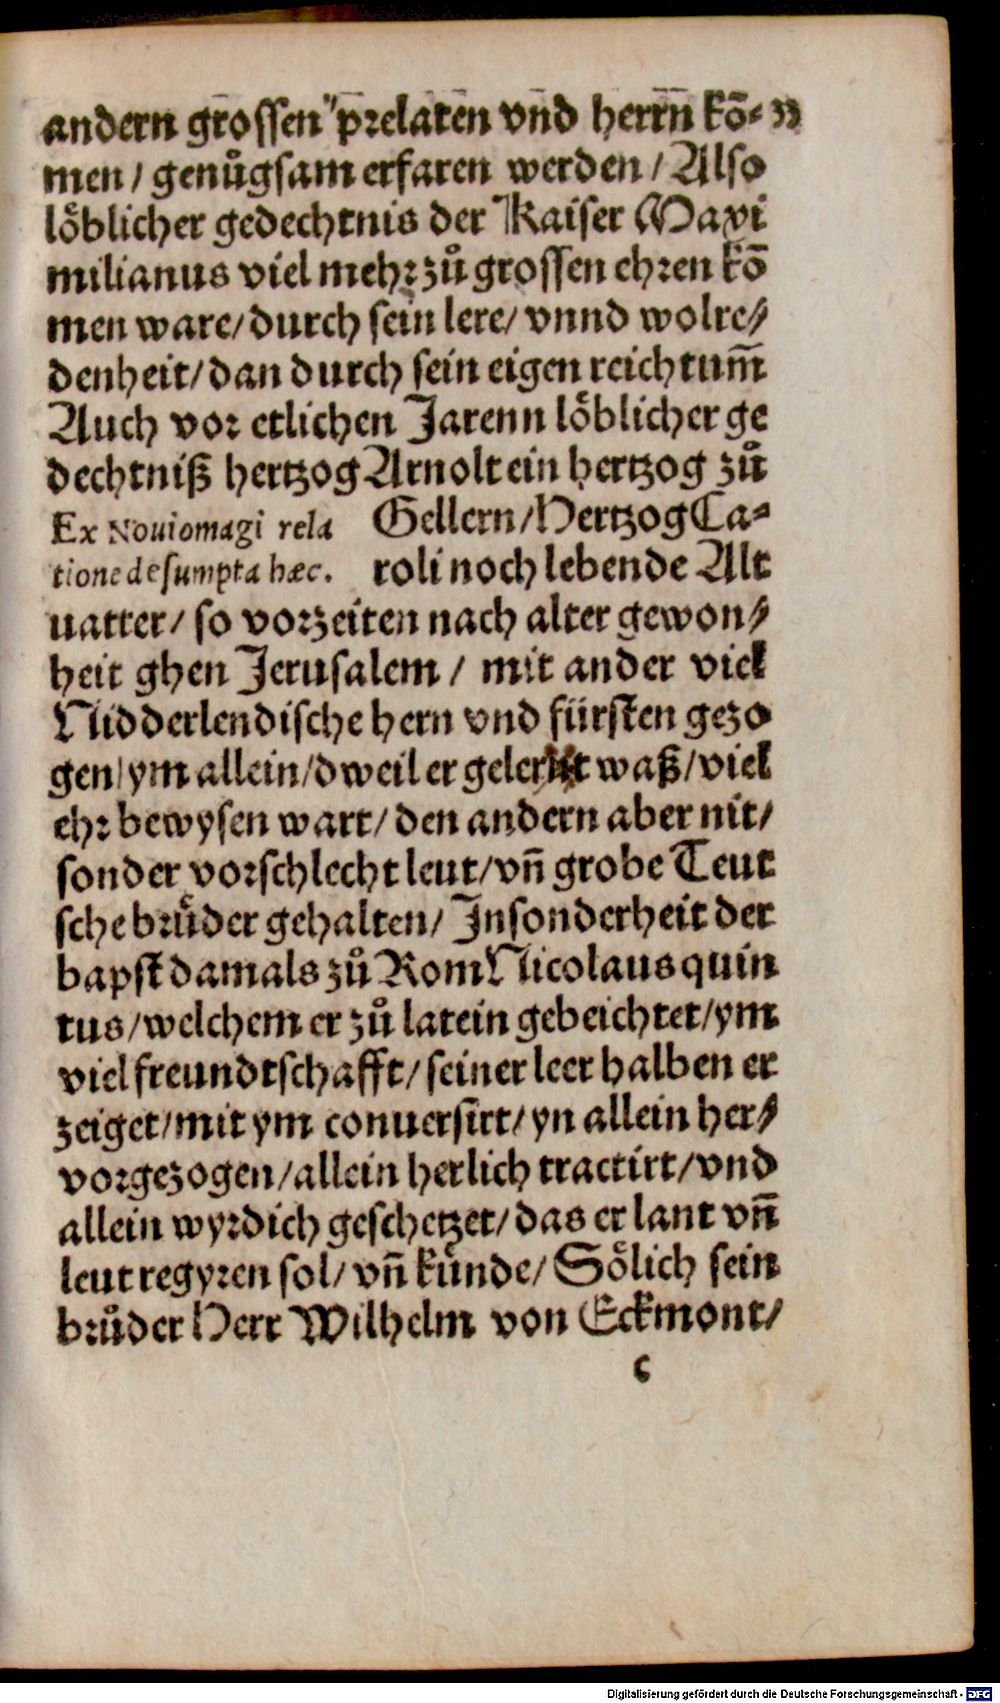 andern grossen prelaten vnd herrn kō-
men / genůgsam erfaren werden / Also
lȯ̈blicher gedechtnis der Kaiser Maxi
milianus viel mehr zů grossen ehren kō
men ware/durch sein lere/ vnnd wolre/
denheit/dan durch sein eigen reichtum̄
Auch vor etlichen Jarenn löblicher ge
dechtniß hertzog Arnolt ein hertzog zů
Gellern/Hertzog Ca-
roli noch lebende Alt
Ex Nouiomagi rela
tione desumpta hæc.
uatter/ so vorzeiten nach alter gewon/
heit ghen Jerusalem / mit ander viel
Nidderlendische hern vnd fürsten gezo
gen/ym allein/dweil er gelert waß/viel
ehr bewysen wart/den andern aber nit/
sonder vor schlecht leut/vn̄ grobe Teut
sche brůder gehalten/ Insonderheit der
bapst damals zů Rom Nicolaus quin
tus/welchem er zů latein gebeichtet/ym
viel freundtschafft/seiner leer halben er
zeiget/mit ym conuersirt/yn allein her/
vorgezogen/allein herlich tractirt/vnd
allein wyrdich geschetzet/das er lant vn̄
leut regyren sol/ vn̄ künde/ Sölich sein
brůder Herr Wilhelm von Eckmont/
c
Digitalisierung gefördert durch die Deutsche Forschungsgemeinschaft - DFG